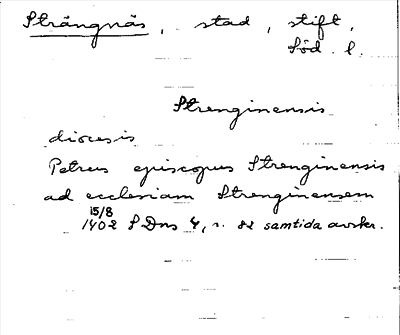 Strängnäs, stad, stift,
Söd. l.
Strenginensis
diocesis
Petrus episcopus Strenginensis
ad ecclesiam Strenginensem
15/8
1402 SDns 4, s. 82 samtida avskr.